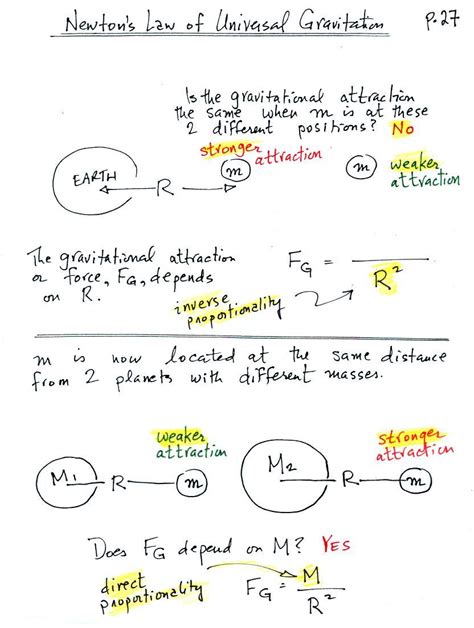 Newton's Law of Universal Gravitation p.27
Is the gravitational attraction
the same when m is at these
2 different positions? No
stronger
attraction
EARTH R m m weaker
attraction
The gravitational attraction
or force, FG, depends
on R.
FG = 
R²
inverse
proportionality
m is now located at the same distance
from 2 planets with different masses.
weaker
attraction
stronger
attraction
M1 R m M2 R m
Does FG depend on M? YES
direct
proportionality
FG = M
R²